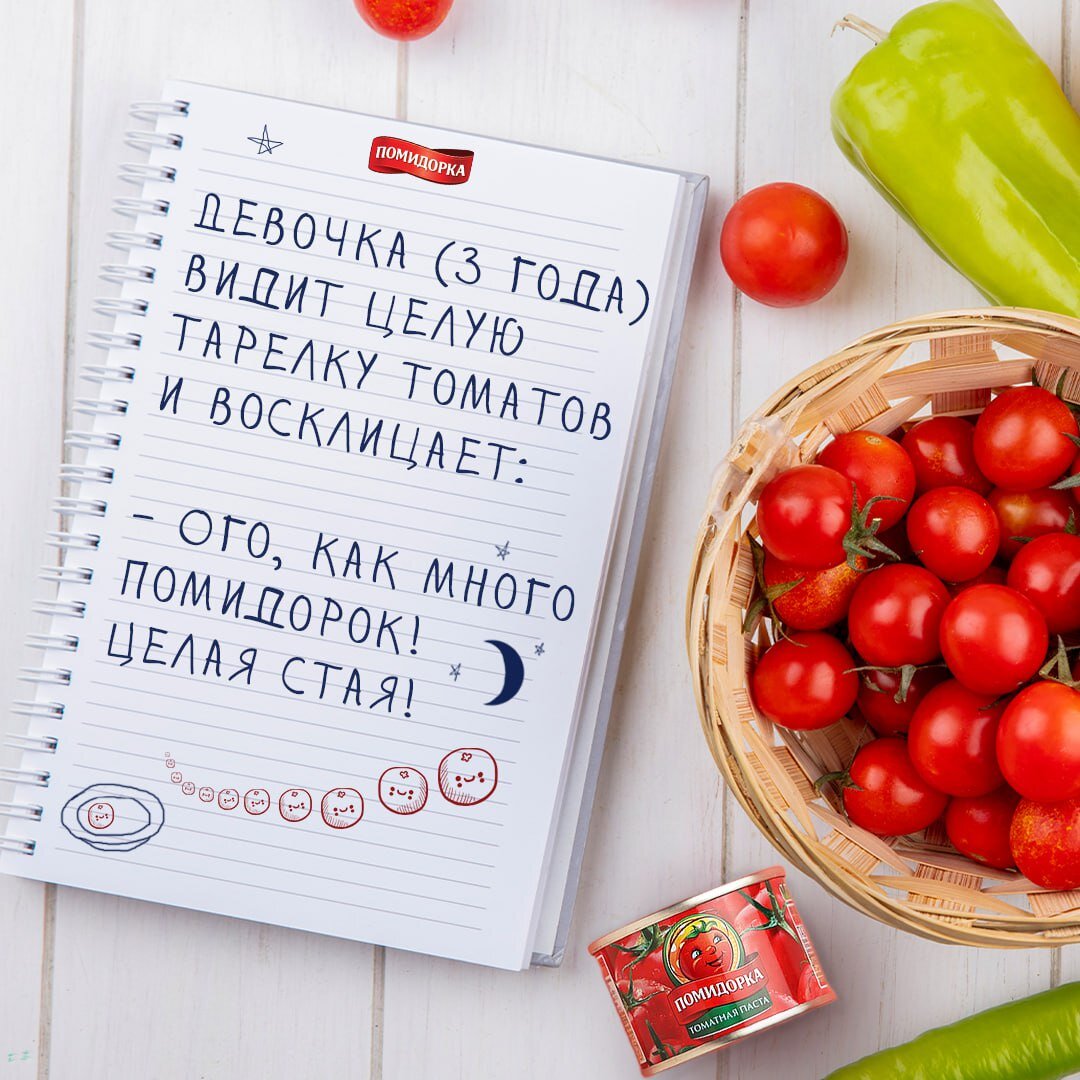 ПОМИДОРКА
ДЕВОЧКА (3 ГОДА)
ВИДИТ ЦЕЛУЮ
ТАРЕЛКУ ТОМАТОВ
И ВОСКЛИЦАЕТ:
- ОГО, КАК МНОГО
ПОМИДОРОК!
ЦЕЛАЯ СТАЯ!
ПОМИДОРКА
ТОМАТНАЯ ПАСТА